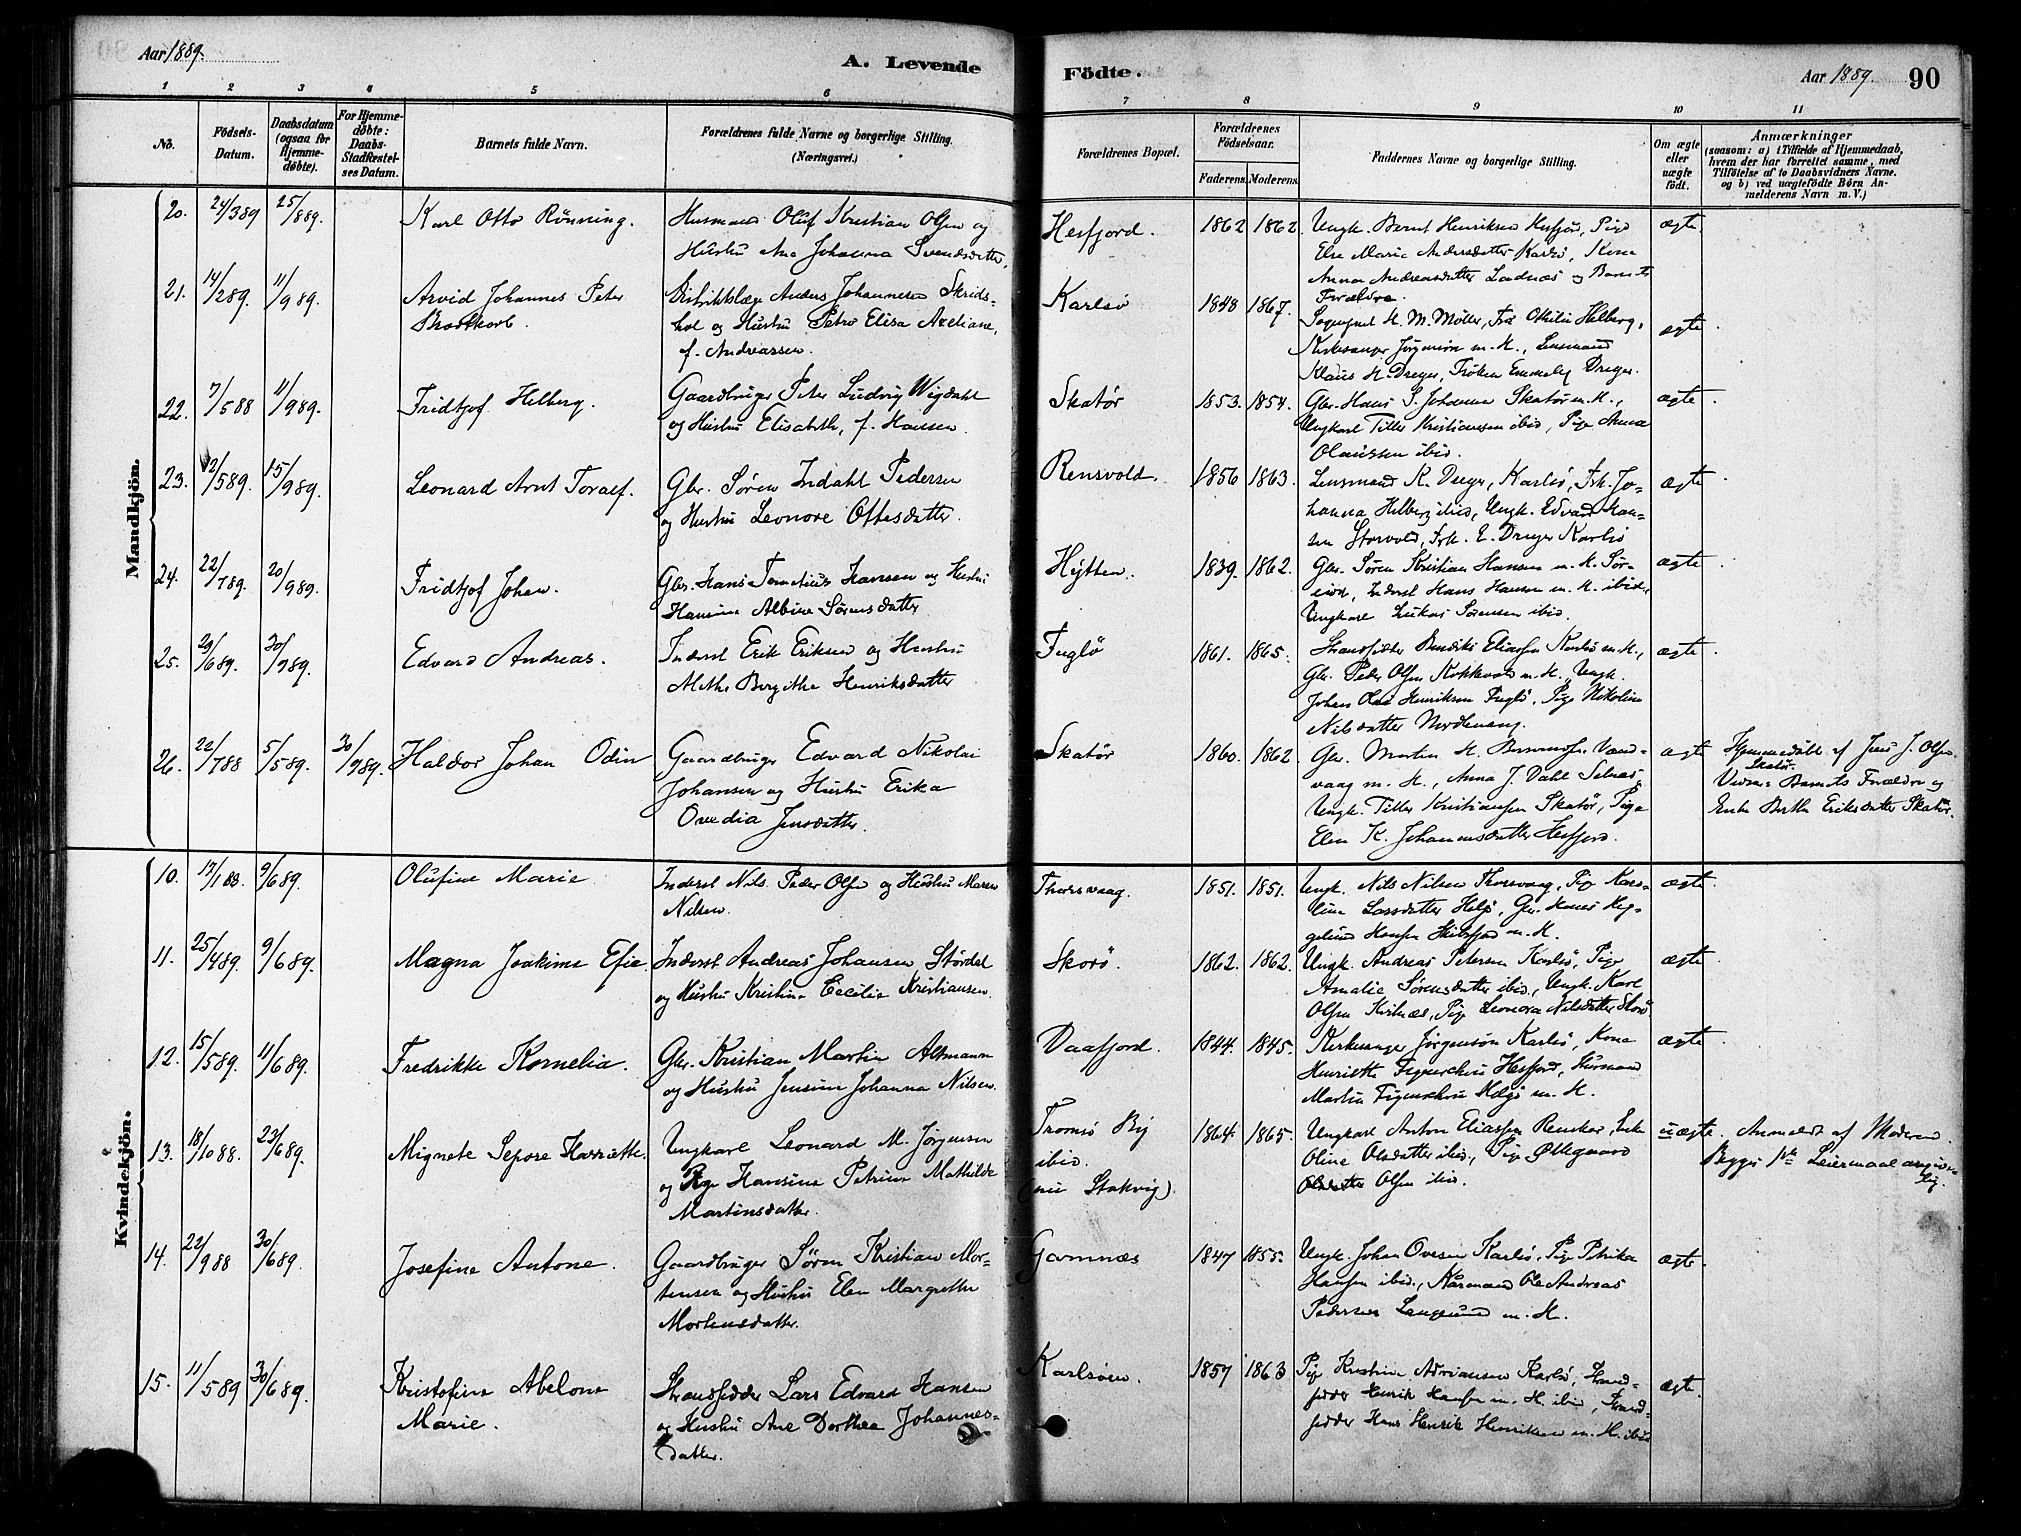 Aar 1889.
A. Levende
Födte.
Aar 1889.
90
1 2 3 4 5 6 7 8 9 10 11
No.
Födsels-Datum.
Daabsdatum (ogsaa for Hjemme-døbte).
For Hjemme-døbte: Daabs-Stadfæstel-ses Datum.
Barnets fulde Navn.
Forældrenes fulde Navne og borgerlige Stilling. (Næringsvei.)
Forældrenes Bopæl.
Forældrenes Födselsaar.
Faderens. Moderens.
Faddernes Navne og borgerlige Stilling.
Om ægte eller uægte født.
Anmærkninger
(saasom: a) i Tilfælde af Hjemmedaab,
hvem der har forrettet samme, med
Tilföielse af to Daabsvidners Navne.
og b) ved uægtefödte Börn An-
melderens Navn m. V.)
Mandkjön.
20. 24/3 89 25/8 89. Karl Otto Rönning. Husmand Oluf Kristian Olsen og
Hustru Ane Johanna Svendsdatter.
Hesfjord. 1862 1862. Ungk. Bernt Henriksen Hesfjord, Pige
Else Marie Andersdatter Karlsö, Kona
Anna Andreasdatter Ladnæs og Barnets
Forældre.
ægte.
21. 14/2 89. 11/9 89. Arvid Johannes Peter
Brodtkorb.
Distriktslæge Anders Johannesen Skrids-
hol og Hustru Petra Elisa Axeliane,
f. Andreassen.
Karlsö 1848 1867. Sogneprest H. M. Möller, Frk Othilie Helberg,
Kirkesanger Jörgensön m. H., Lensmand
Klaus H. Dreyer, Fröken Dreyer.
ægte.
22. 7/5 88 11/9 89. Fridtjof Helberg. Gaardbruger Peter Ludvig Wigdahl
og Hustru Elisabeth, f. Hansen.
Skatör 1853. 1854. Gbr. Hans J. Johansen Skatör m. H.,
Ungkarl Titter Kristiansen ibid, Pige Anna
Olaussen ibid.
ægte.
23. 12/5 89. 15/9 89. Leonard Arnt Toralf. Gbr. Sören Indahl Pedersen
og Hustru Leonore Ottesdatter.
Rensvold. 1856 1863. Lensmand K. Dreyer, Karlsö, Frk. Jo-
hanna Helberg ibid, Ungk. Edvard Han-
sen Storvold, Frk. E. Dreyer Karlsö
ægte
24. 22/7 89. 20/9 89. Fridtjof Johan. Gbr. Hans Hansen og Hustru
Hansine Albine Sörensdatter
Hytten. 1839. 1862. Gbr. Sören Kristian Hansen m. H. Sör-
, Inderst Hans Hansen m. H. ibid,
Ungkarl Lukas Sörensen ibid.
ægte
25. 29/6 89. 30/7 89. Edvard Andreas. Inderst Erik Eriksen og Hustru
Methe Bergithe Henriksdatter
Fuglö 1861. 1865. Strandsidder Eliassen Karlsö m. H.,
Gbr. Peder Olsen m. H., Ungk.
Johan Henriksen Fuglö, Pige Nikoline
Nilsdatter
ægte.
26. 22/7 88 5/5 89. 30/9 89. Haldor Johan Odin Gaardbruger Edvard Nikolai
Johansen og Hustru Erika
Ovedia Jensdatter.
Skatör 1860. 1862. Gbr. Morten H. Vand-
vaag m. H., Anna J. Dahl Selnæs,
Ungk. Titter Kristiansen Skatör, Pige
Elen K. Johannesdatter Hesfjord.
ægte Hjemmedöbt af Jens J. Olsen
Skatör.
Vidner: Barnets Forældre og
Enke Berthe Eriksdatter Skatör.
Kvindekjön.
10. 17/1 88. 9/6 89. Olufine Marie Inderst Nils Peder Olsen og Hustru Maren
Nilsen.
Thorsvaag. 1851. 1851. Ungk. Nils Nilsen Thorsvaag, Pige Karo-
line Larsdatter Helgö, Gbr. Hans
Hansen Skibsfjord m. H.
ægte.
11. 25/4 89. 9/6 89. Magna Joakime Efie Inderst Andreas Johansen Stördal
og Hustru Kristine Cecilie Kristiansen.
Skorö. 1862. 1862. Ungk. Andreas Petersen Karlsö, Pige
Amalie Sörensdatter ibid., Ungk. Karl
Olsen, Pige Leonora Nilsdatter Skorö
ægte.
12. 15/5 89. 11/6 89. Fredrikke Kornelia. Gbr. Kristian Martin Altmann
og Hustru Jensine Johanna Nilsen.
Vaafjord. 1844. 1845. Kirkesanger Jörgensön Karlsö, Kona
Henriette Figenschou Hesfjord, Styrmand
Martin Figenschou Helgö m. H.
ægte.
13. 18/10 88. 23/6 89. Mignete Sepora Harriette. Ungkarl Leonard M. Jörgensen
og Pige Hansine Petrine Mathilde
Martinsdatter.
Tromsö By
ibid.
(nu Stakvig).
1864. 1865. Ungkarl Anton Eliassen, Enke
Oline Olsdatter ibid., Pige Öllegaard
Olsen ibid.
uægte. Anmeldt af Moderen.
Begges 1ste Leiermaal
14. 22/9 88 30/6 89. Josefine Antone. Gaardbruger Sören Kristian Mor-
tensen og Hustru Elen Margrethe
Mortensdatter.
Gamnæs 1847 1855. Ungk. Johan Ovesen Karlsö, Pige Petrika
Hansen ibid., Ole Andreas
Pedersen Langsund m. H.
ægte.
15. 11/5 89 30/6 89. Kristofine Abelone
Marie.
Strandsidder Lars Edvard Hansen
og Hustru Ane Dorthea Johannes-
datter.
Karlsöen. 1857 1863 Pige Kristine Adriansen Karlsö, Strand-
sidder Henrik Hansen m. H. ibid, Strand-
sidder Hans Henrik Henriksen m. H. ibid
ægte.